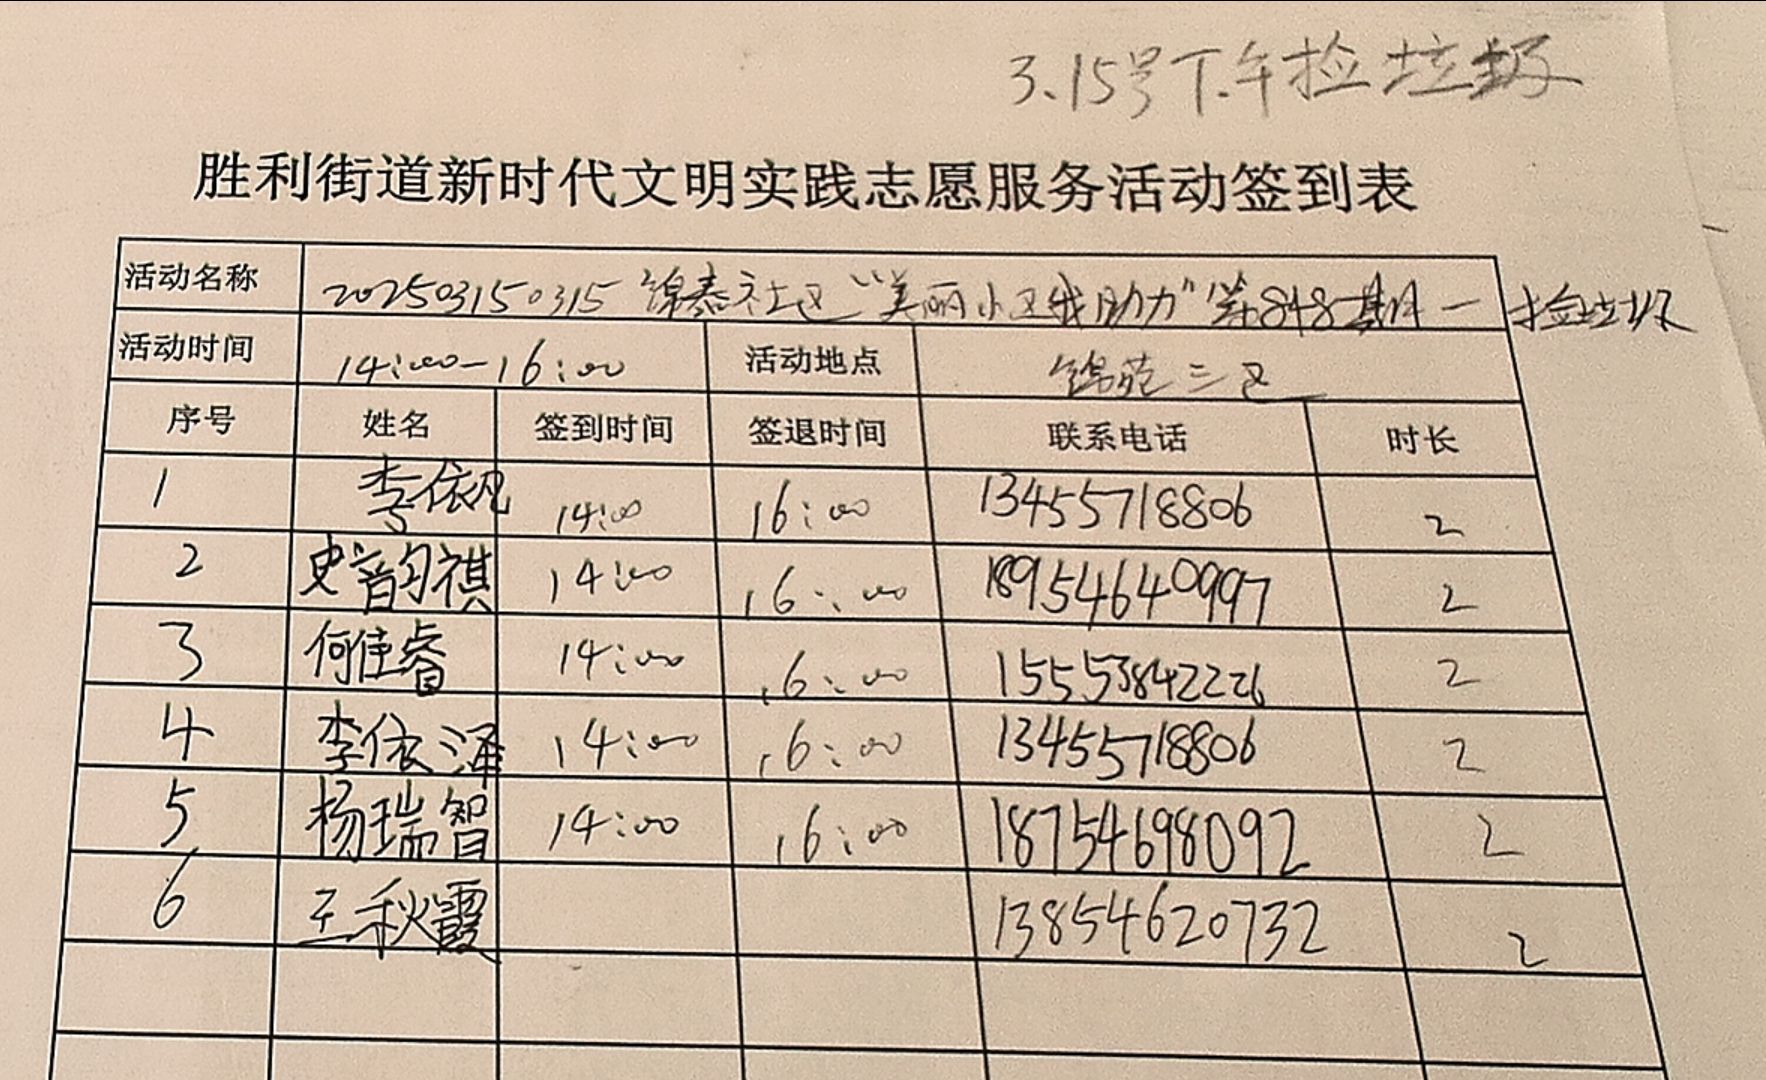 3.15号下午捡垃圾
胜利街道新时代文明实践志愿服务活动签到表
活动名称 202503150315 锦泰社区“美丽小区我助力”第848期—捡垃圾
活动时间 14:00-16:00 活动地点 锦苑三区
序号 姓名 签到时间 签退时间 联系电话 时长
1 李依凡 14:00 16:00 13455718806 2
2 史韵祺 14:00 16:00 18954640997 2
3 何佳睿 14:00 16:00 15553842226 2
4 李依泽 14:00 16:00 13455718806 2
5 杨瑞智 14:00 16:00 18754698092 2
6 王秋霞 13854620732 2